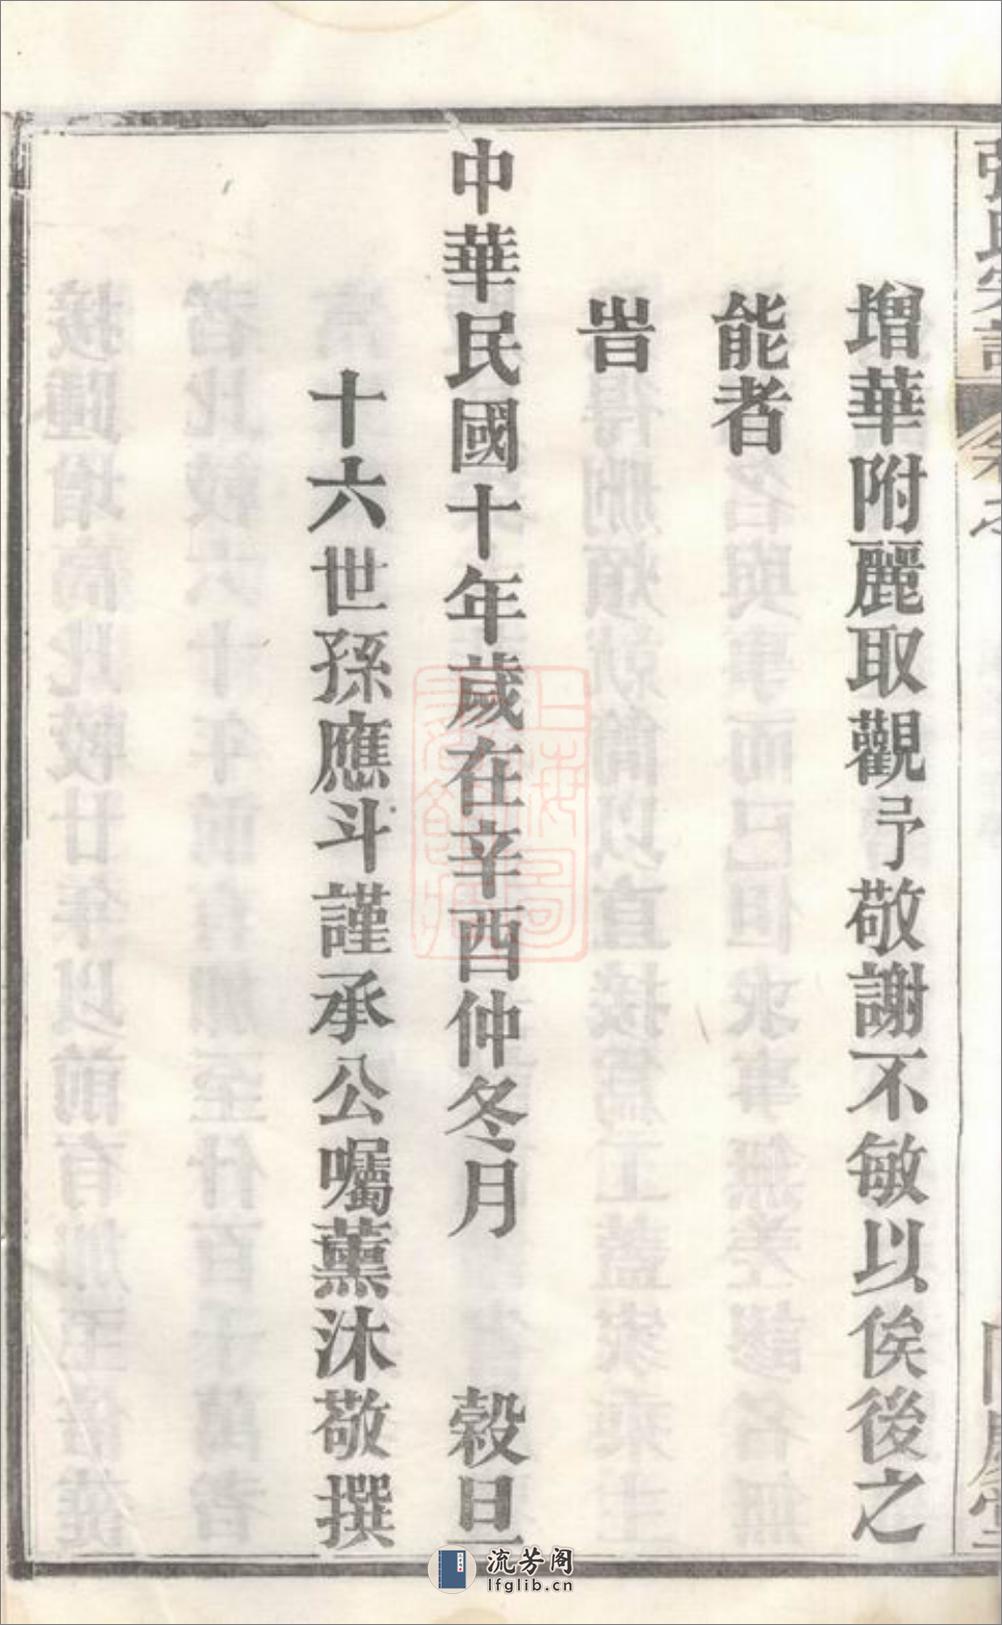 張氏宗譜
增華附麗取觀予敬謝不敏以俟後之
能者
旹
中華民國十年歲在辛酉仲冬月 穀旦
十六世孫應斗謹承公囑薰沐敬撰
流芳阁
lfglib.cn